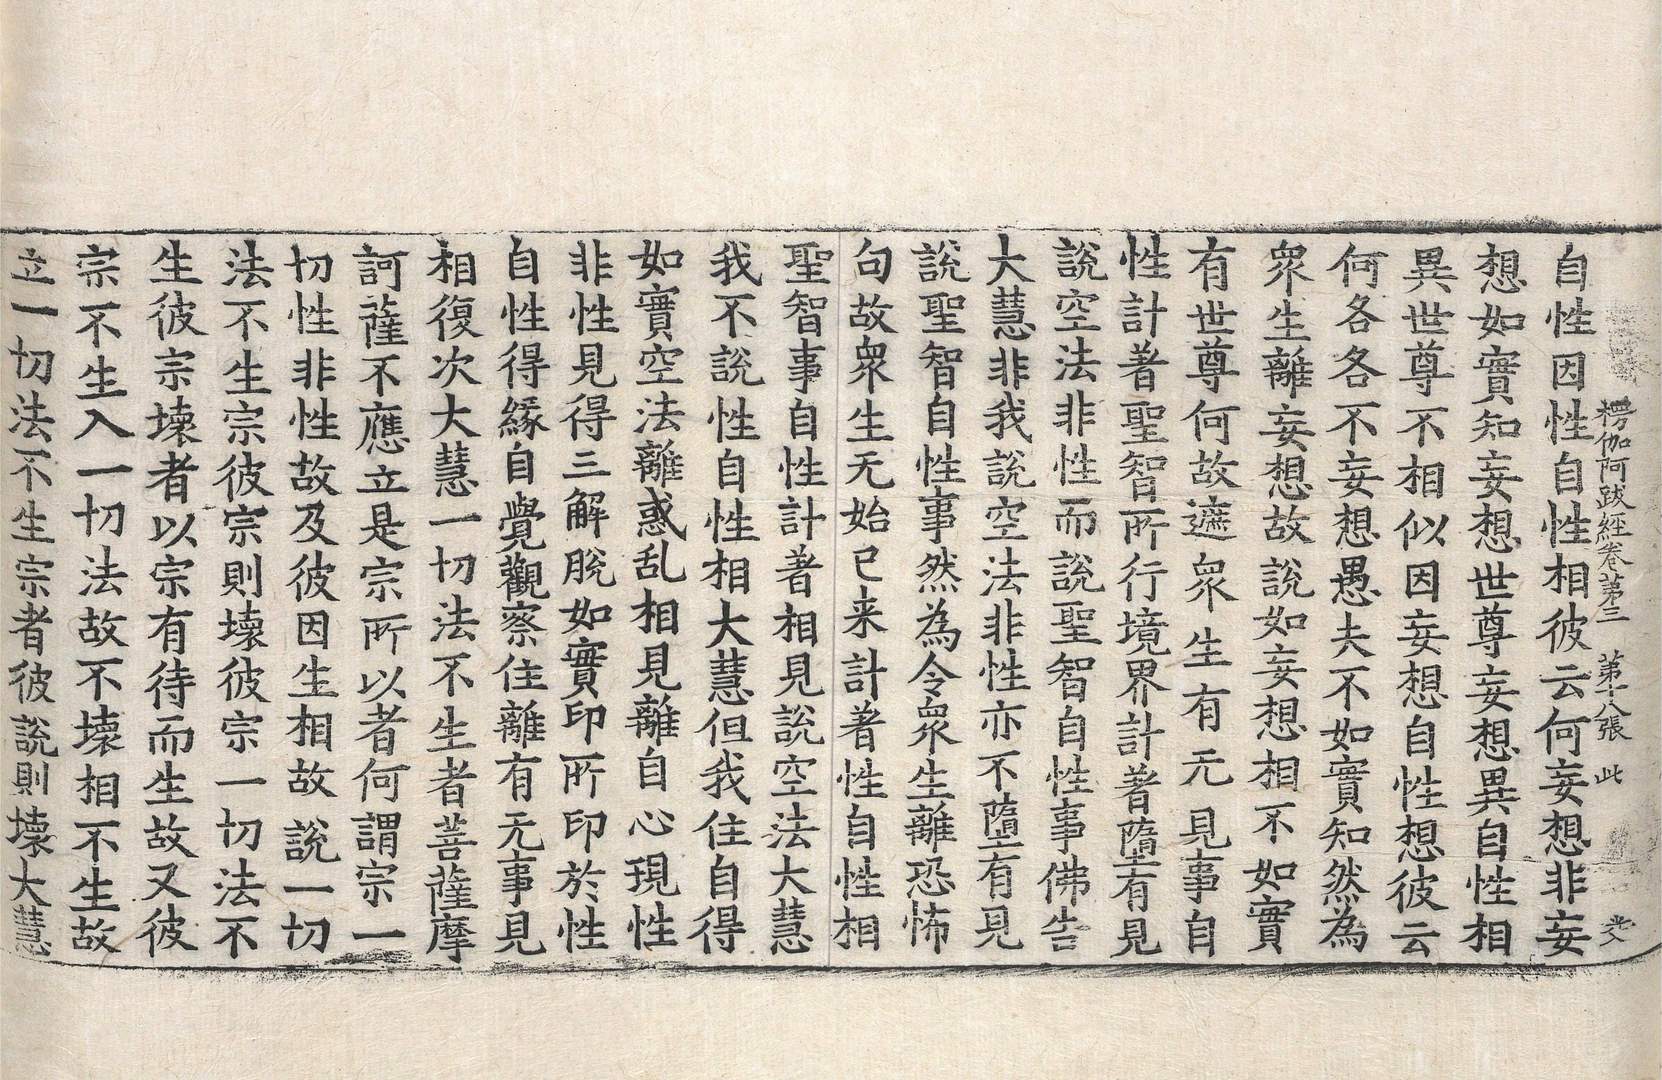 楞伽阿跋經卷第三　第十八張　此
自性因性自性相彼云何妄想非妄
想如實知妄想世尊妄想異自性相
異世尊不相似因妄想自性想彼云
何各各不妄想愚夫不如實知然為
衆生離妄想故說如妄想相不如實
有世尊何故遮衆生有无見事自
性計著聖智所行境界計著墮有見
說空法非性而說聖智自性事佛告
大慧非我說空法非性亦不墮有見
說聖智自性事然為令衆生離恐怖
句故衆生无始已来計著性自性相
聖智事自性計著相見說空法大慧
我不說性自性相大慧但我住自得
如實空法離惑乱相見離自心現性
非性見得三解脫如實印所印於性
自性得緣自覺觀察住離有无事見
相復次大慧一切法不生者菩薩摩
訶薩不應立是宗所以者何謂宗一
切性非性故及彼因生相故說一切
法不生宗彼宗則壞彼宗一切法不
生彼宗壞者以宗有待而生故又彼
宗不生入一切法故不壞相不生故
立一切法不生宗者彼說則壞大慧